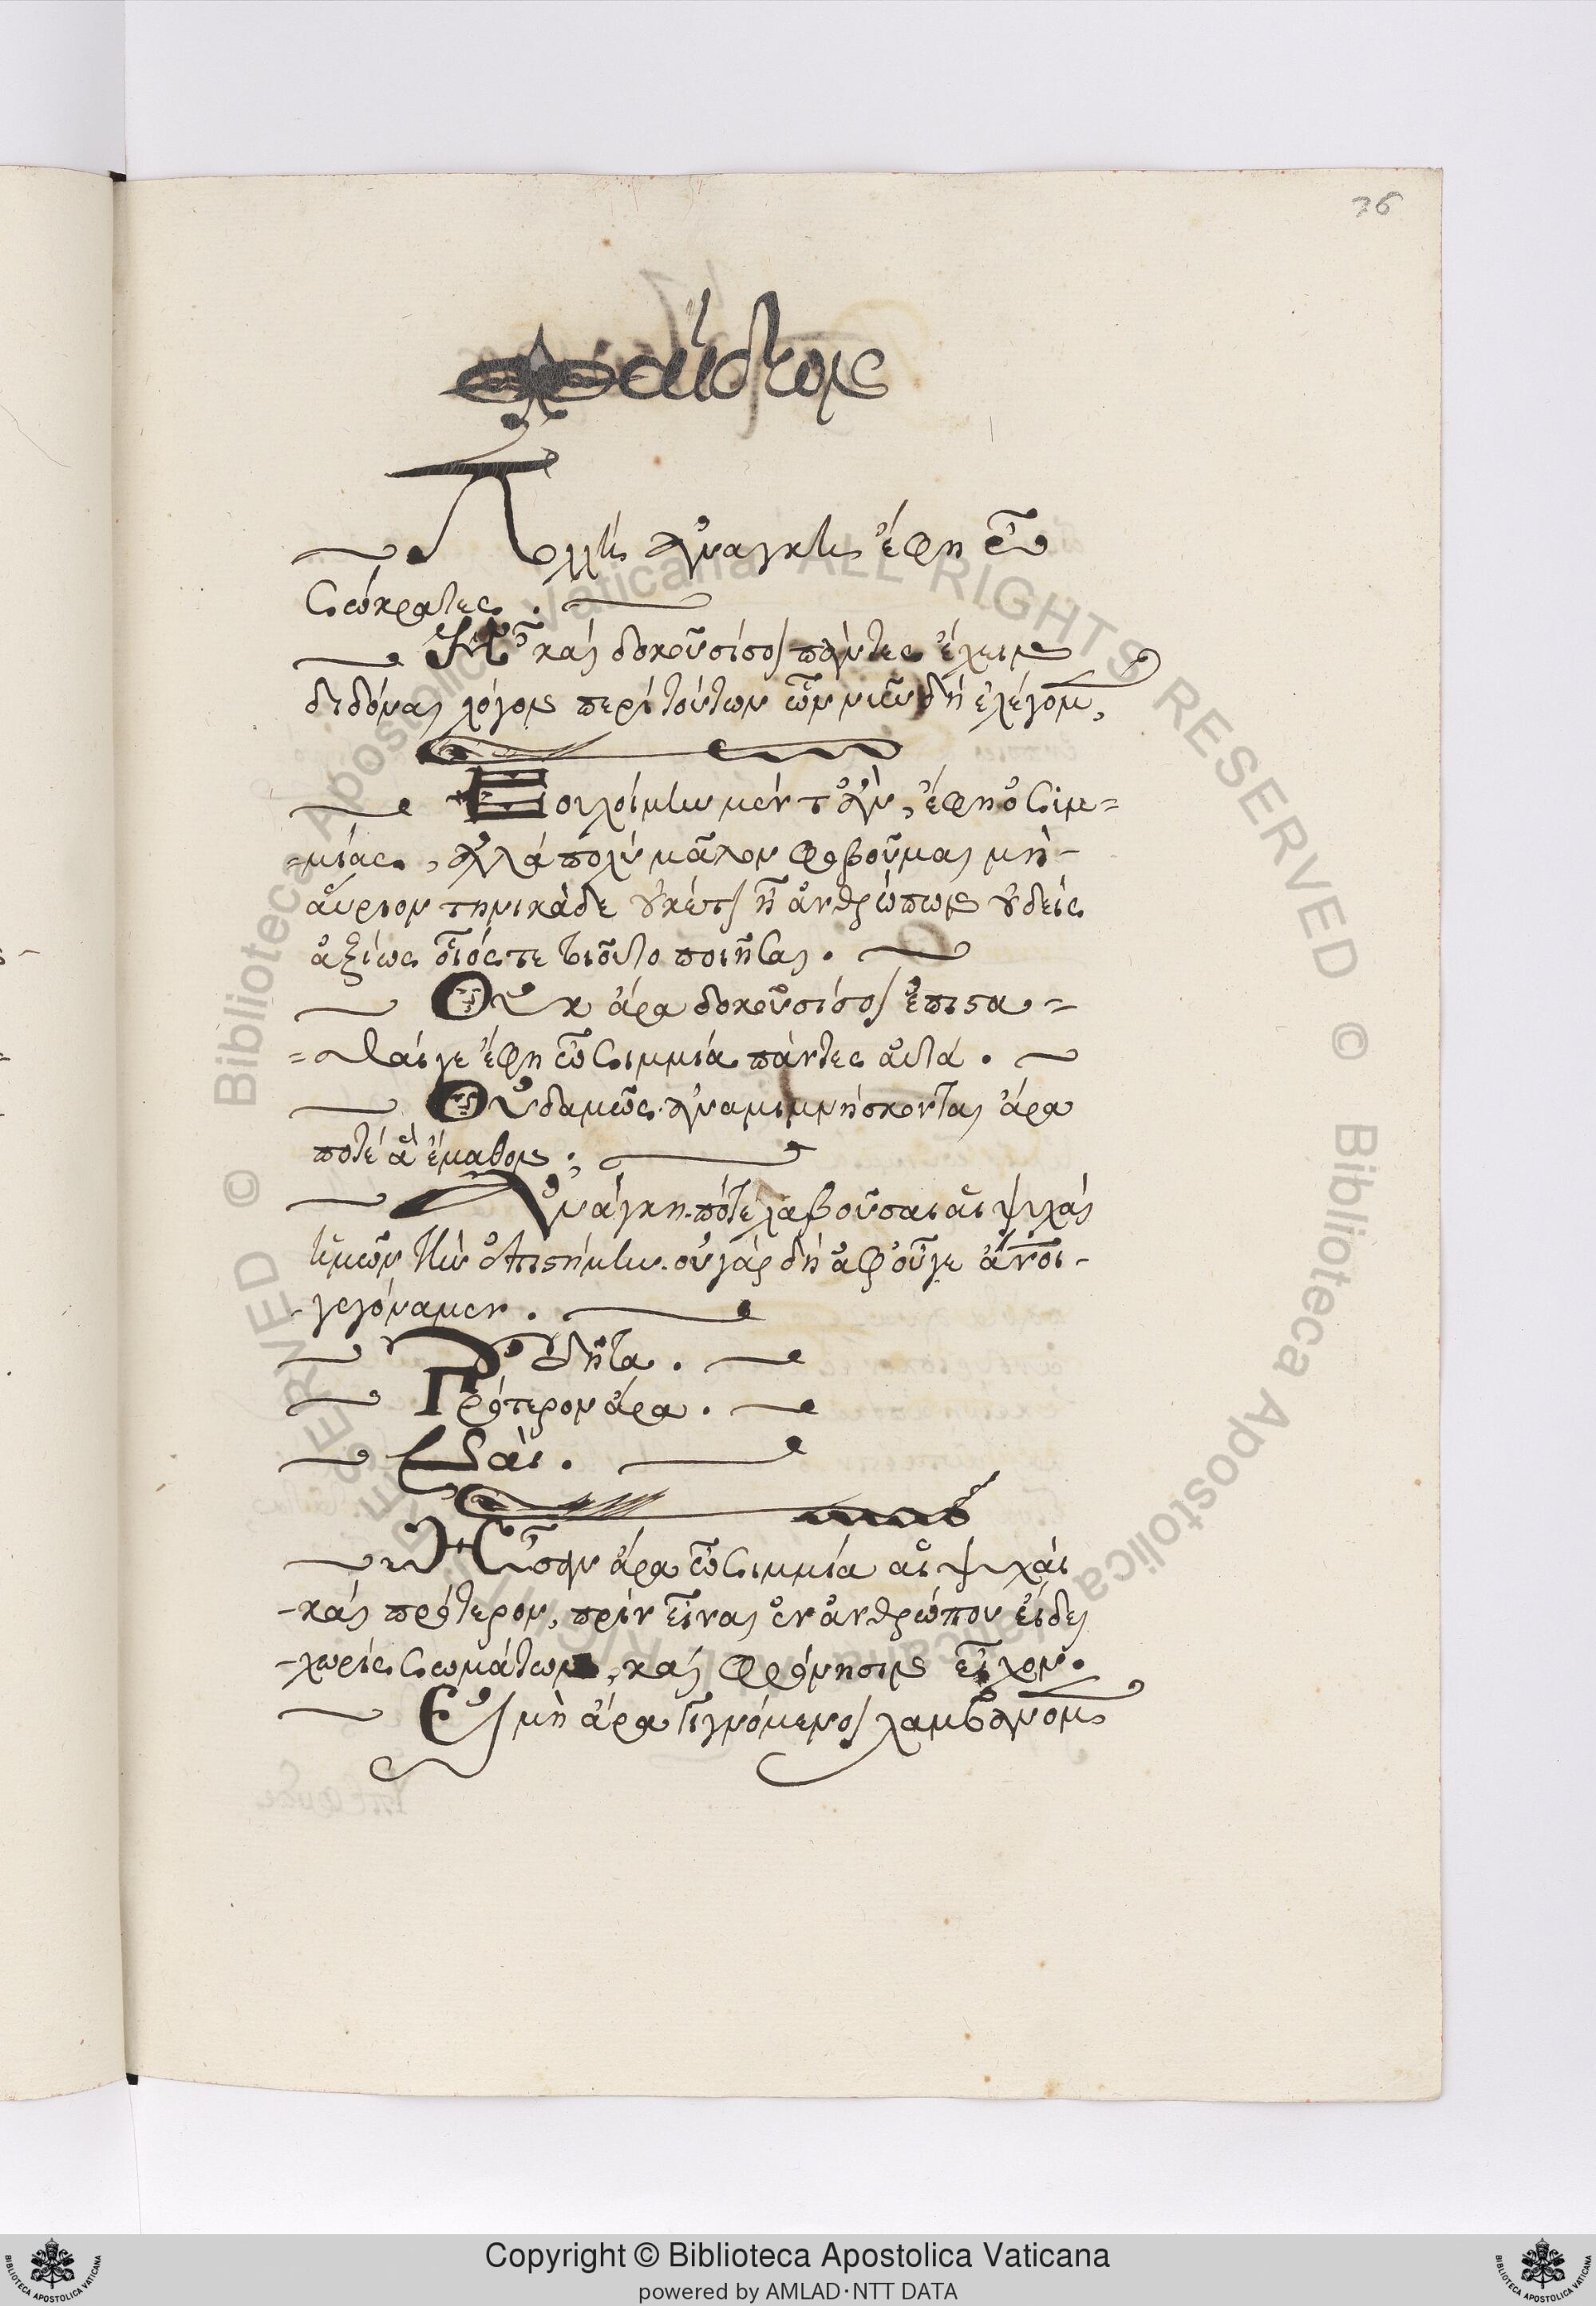 36
Φαίδων
Πολλὴ ἀνάγκη ἔφη ὦ
Σώκρατες .
Ἦ καὶ δοκοῦσί σοι πάντες ἔχειν
διδόναι λόγον περὶ τούτων ὧν νῦν δὴ ἐλέγομεν,
Βουλοίμην μέντ' ἂν, ἔφη ὁ Σιμ=
=μίας , ἀλλὰ πολὺ μᾶλλον φοβοῦμαι μὴ-
αὔριον τηνικάδε οὐκέτι ἦ ἀνθρώπων οὐδεὶς
ἀξίως οἷός τε τοῦτο ποιῆσαι .
Οὐκ ἄρα δοκοῦσί σοι ἐπίστα=
=σθαί γε ἔφη ὦ Σιμμία πάντες αὐτά .
Οὐδαμῶς. ἀναμιμνήσκονται ἄρα
ποτέ ἃ ἔμαθον ;
Ἀνάγκη. πότε λαβοῦσαι αἱ ψυχαὶ
ἡμῶν τὴν ἐπιστήμην. οὐ γὰρ δὴ ἀφ' οὗ γε ἄνοι-
-γεγόναμεν .
Οὐ δῆτα .
Πρότερον ἄρα .
Ναί .
Ἦσαν ἄρα ὦ Σιμμία αἱ ψυχαὶ
-καὶ πρότερον, πρὶν εἶναι ἐν ἀνθρώπου εἴδει
-χωρὶς σωμάτων , καὶ φρόνησιν εἶχον.
Εἰ μὴ ἄρα γιγνόμενοι λαμβάνομεν
© Biblioteca Apostolica Vaticana ALL RIGHTS RESERVED © Biblioteca Apostolica Vaticana ALL RIGHTS RESERVED
Copyright © Biblioteca Apostolica Vaticana
powered by AMLAD·NTT DATA
BIBLIOTECA APOSTOLICA VATICANA
BIBLIOTECA APOSTOLICA VATICANA